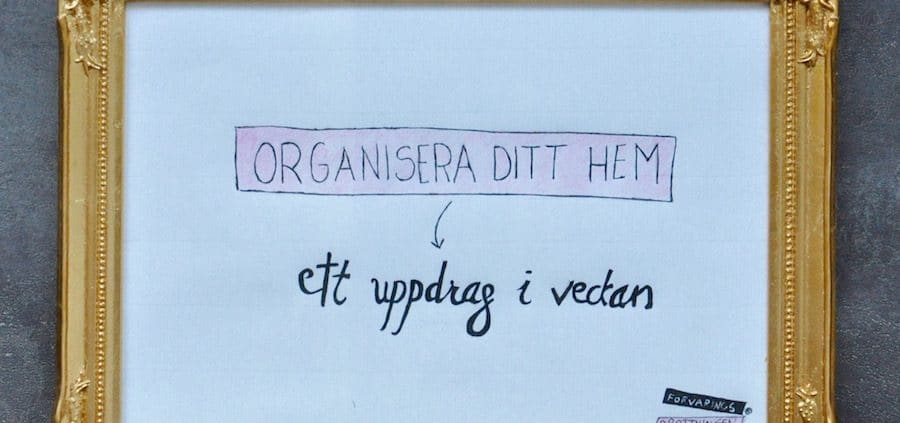 ORGANISERA DITT HEM
ett uppdrag i veckan
FÖRVARINGS
DROTTNINGEN